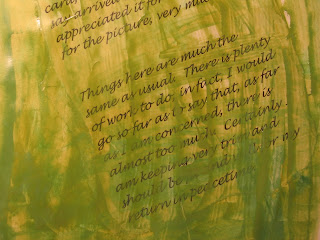 say arrived
appreciated it for
for the picture, very mu
Things here are much the
same as usual. There is plenty
of work to do, in fact, I would
go so far as to say that, as far
as I am concerned, there is
almost too much. Certainly I
am keeping very trim and
should be in
my
return in peacetime